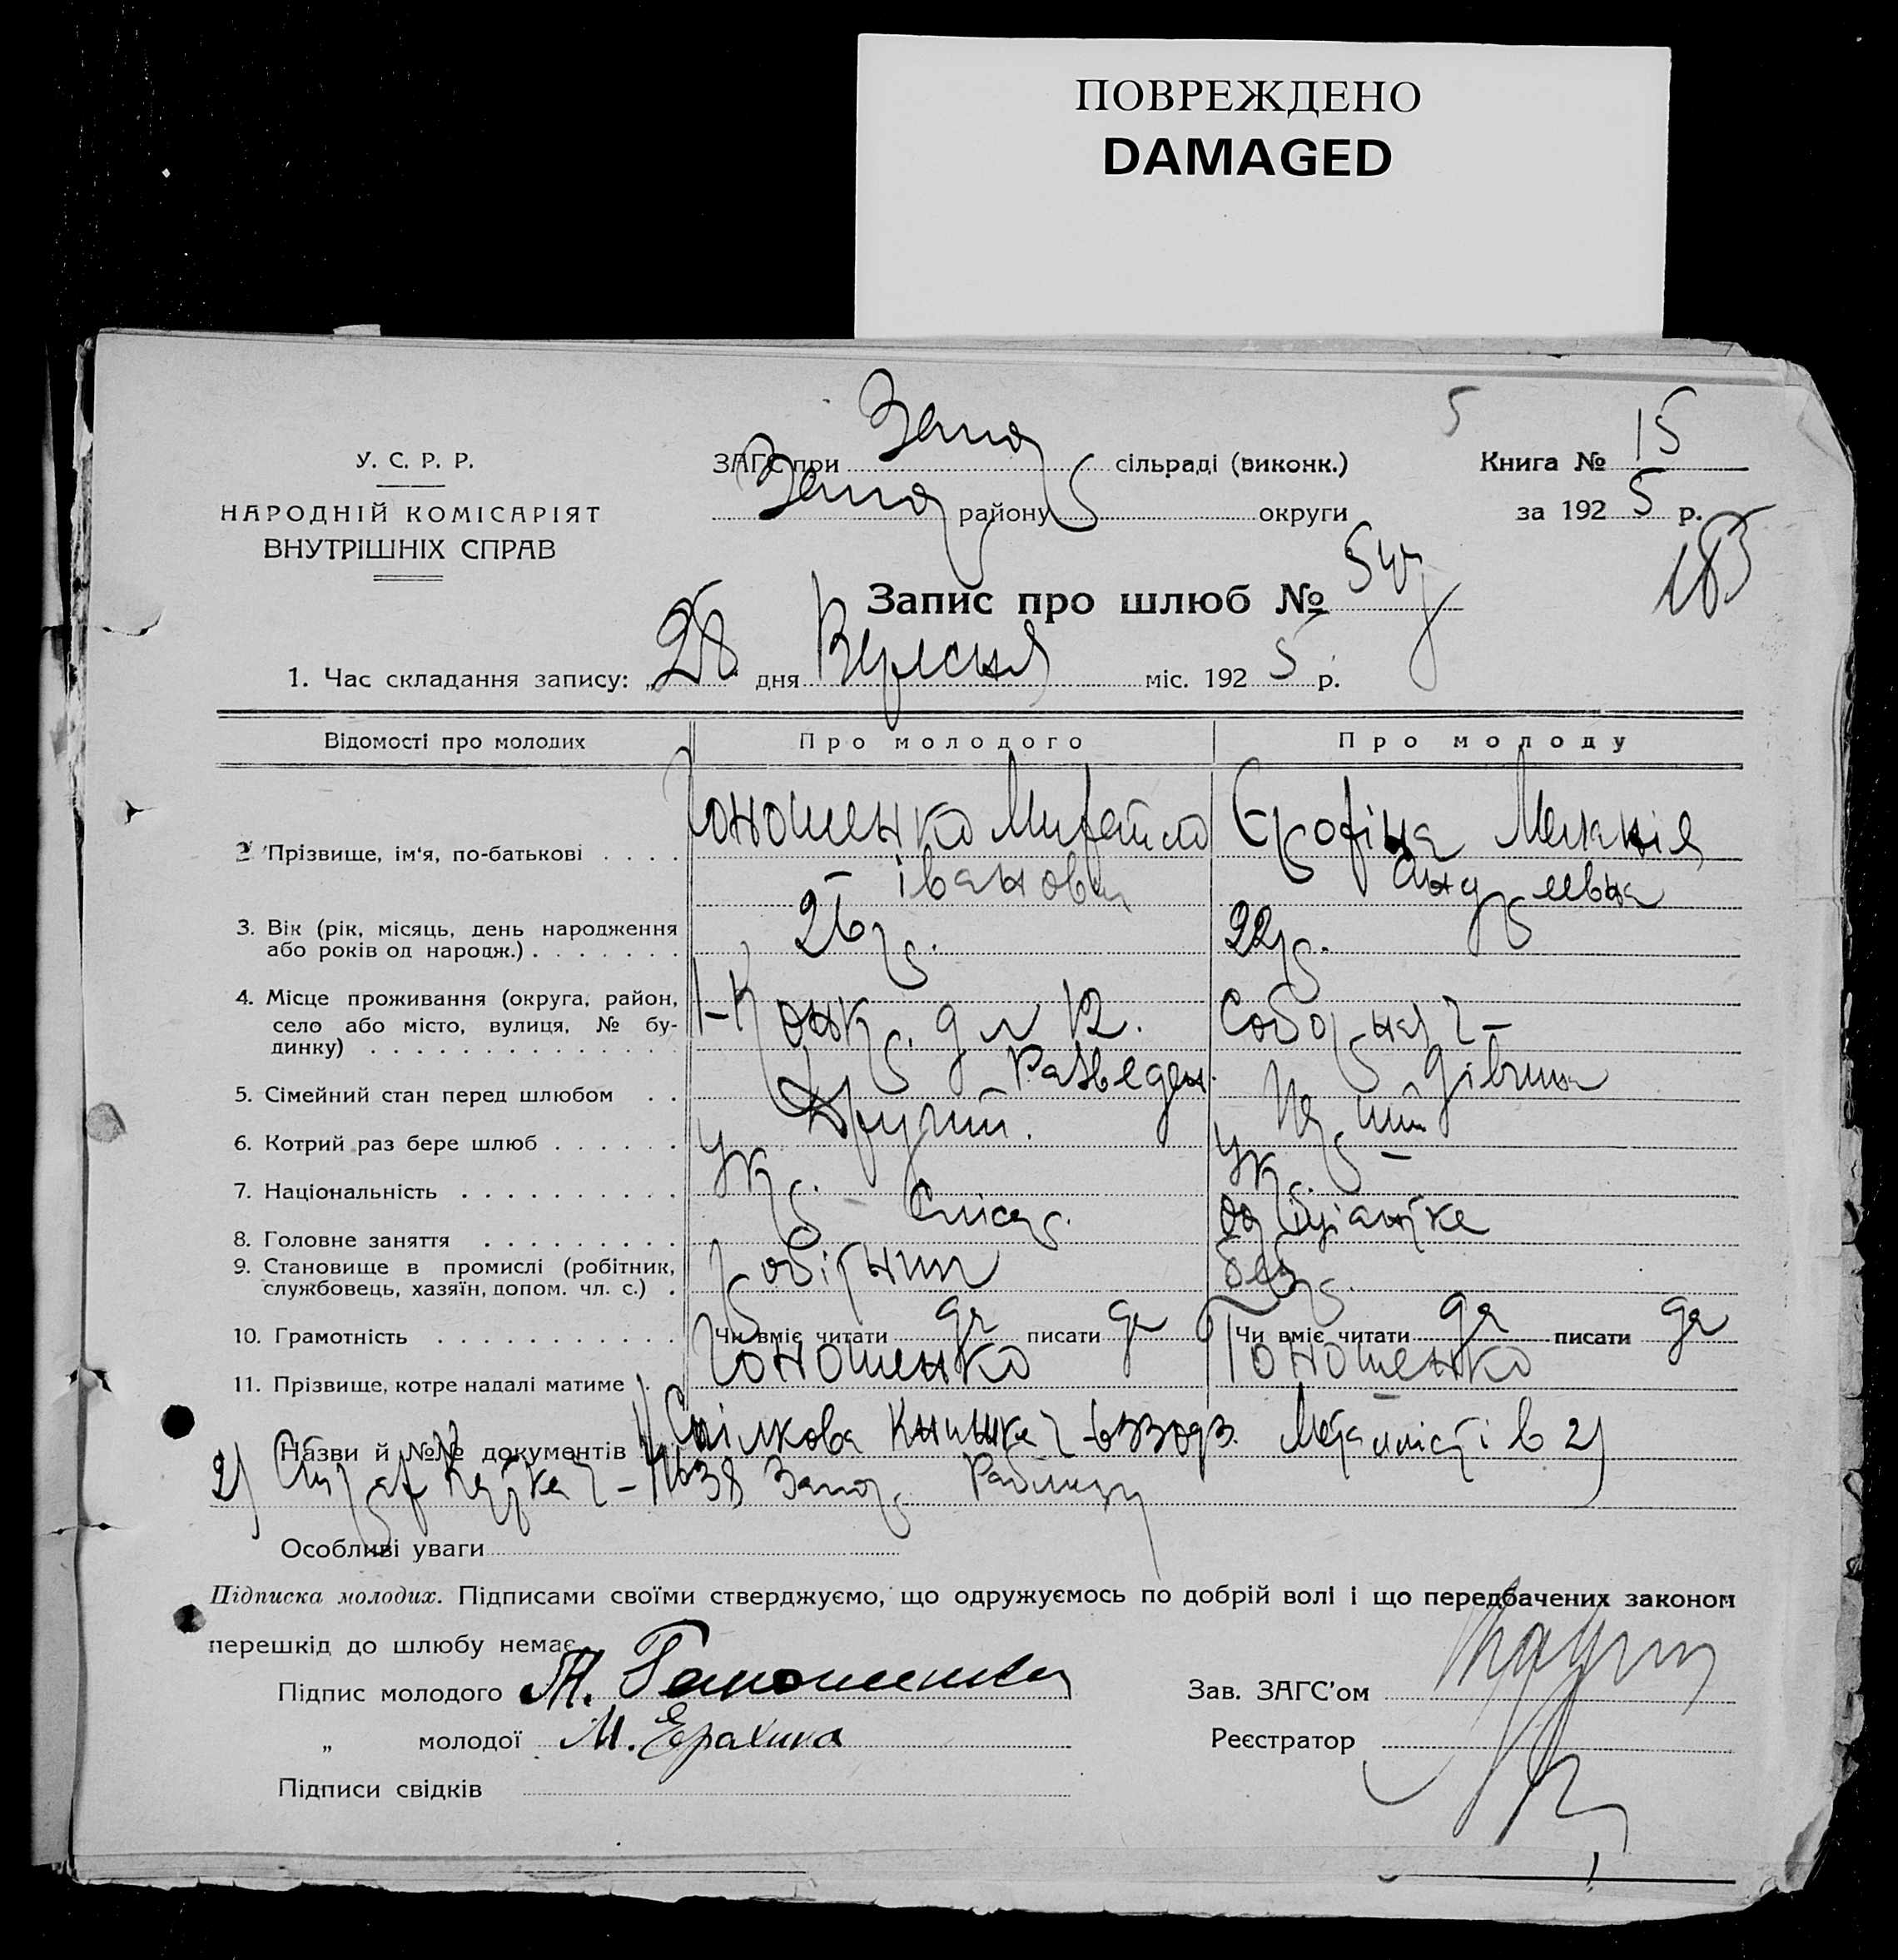 ПОВРЕЖДЕНО
DAMAGED
У. С. Р. Р.
НАРОДНІЙ КОМІСАРІЯТ
ВНУТРІШНІХ СПРАВ
ЗАГС при Запор сільраді (виконк.)
Запор району округи
5
Книга № 15
за 1925 р.
183
Запис про шлюб №
1. Час складання запису: „28" дня Вересня міс. 1925 р.
Відомості про молодих Про молодого Про молоду
2 Прізвище, ім'я, по-батькові . . . . Гоношенко Михайло Єрофіна Меланія
Іванович Андреевна
3. Вік (рік, місяць, день народження
або років од народж.) . . . . . . . 26 р. 22 р.
4. Місце проживання (округа, район,
село або місто, вулиця, № бу-
динку) . . . . . . . . . . . . . . 12. Соборная
5. Сімейний стан перед шлюбом . . Разведен. Дівчина
6. Котрий раз бере шлюб . . . . . . Другий. Перший
7. Національність . . . . . . . . . . Укр. Укр.
8. Головне заняття . . . . . . . . . Слісар.
9. Становище в промислі (робітник,
службовець, хазяїн, допом. чл. с.) . робітник безр.
10. Грамотність . . . . . . . . . . . Чи вміє читати да писати да Чи вміє читати да писати да
11. Прізвище, котре надалі матиме . Гоношенко Гоношенко
Назви й №№ документів 1) Спілкова Книжка Металістів 2)
2) 1638 Запор.
Особливі уваги
Підписка молодих. Підписами своїми стверджуємо, що одружуємось по добрій волі і що передбачених законом
перешкід до шлюбу немає.
Підпис молодого М. Гоношенко
Зав. ЗАГС'ом
„ молодої М. Ерахина
Реєстратор
Підписи свідків